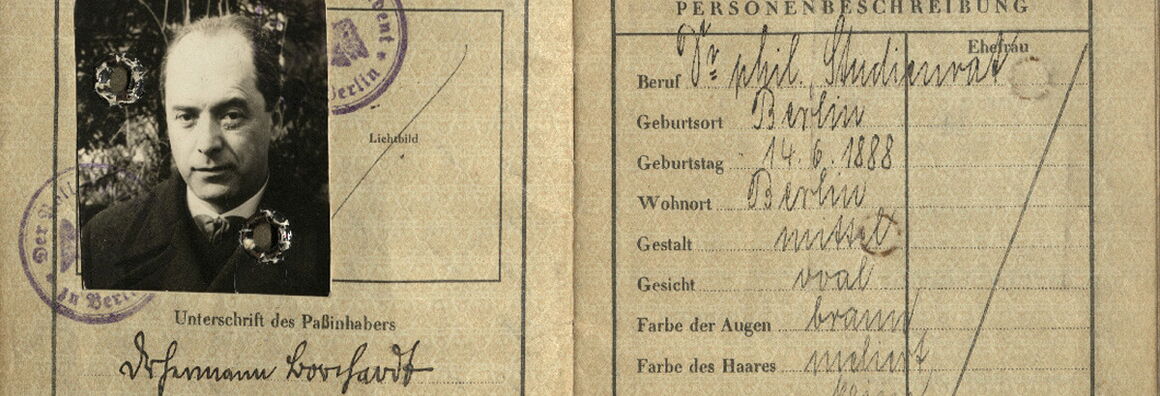 Der Polizeipräsident
in Berlin
Lichtbild
Unterschrift des Paßinhabers
Dr Hermann Borchardt
PERSONENBESCHREIBUNG
Ehefrau
Beruf Dr. phil. Studienrat
Geburtsort Berlin
Geburtstag 14. 6. 1888
Wohnort Berlin
Gestalt mittel
Gesicht oval
Farbe der Augen braun
Farbe des Haares meliert